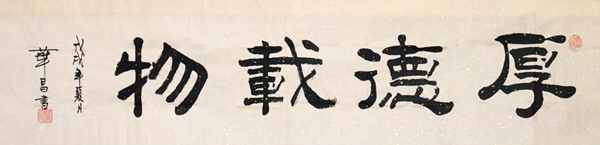 厚德載物
戊戌年夏月
華昌書